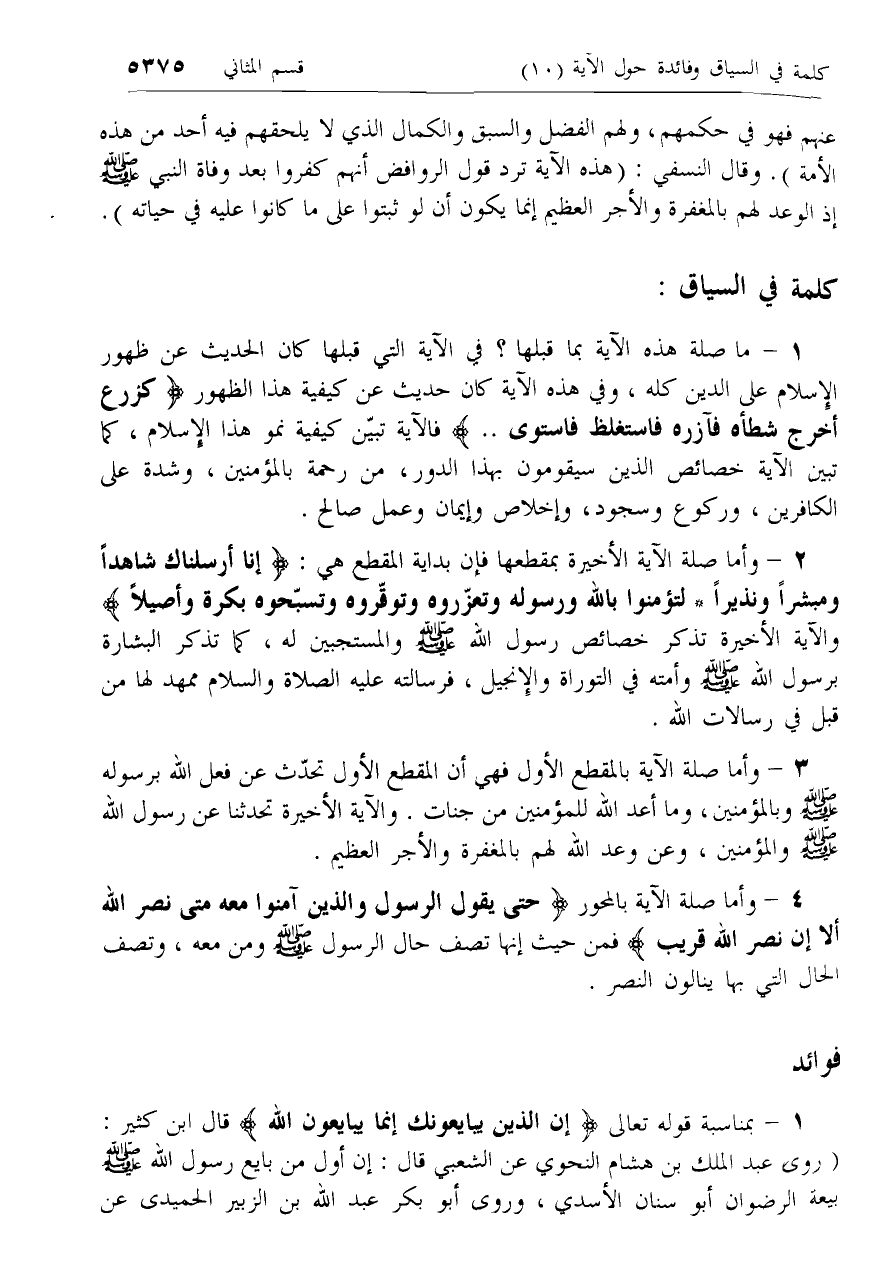 كلمة في السياق وفائدة حول الآية (١٠) قسم المثاني ٥٣٧٥
عنهم فهو في حكمهم، ولهم الفضل والسبق والكمال الذي لا يلحقهم فيه أحد من هذه
الأمة ). وقال النسفي : (هذه الآية ترد قول الروافض أنهم كفروا بعد وفاة النبي ﷺ
إذ الوعد لهم بالمغفرة والأجر العظيم إنما يكون أن لو ثبتوا على ما كانوا عليه في حياته ).
كلمة في السياق :
١ – ما صلة هذه الآية بما قبلها ؟ في الآية التي قبلها كان الحديث عن ظهور
الإسلام على الدين كله ، وفي هذه الآية كان حديث عن كيفية هذا الظهور ﴿ كزرع
أخرج شطأه فآزره فاستغلظ فاستوى .. ﴾ فالآية تبيّن كيفية نمو هذا الإسلام ، كما
تبين الآية خصائص الذين سيقومون بهذا الدور، من رحمة بالمؤمنين ، وشدة على
الكافرين ، وركوع وسجود، وإخلاص وإيمان وعمل صالح .
٢ – وأما صلة الآية الأخيرة بمقطعها فإن بداية المقطع هي : ﴿ إنا أرسلناك شاهداً
ومبشراً ونذيراً * لتؤمنوا بالله ورسوله وتعزّروه وتوقّروه وتسبّحوه بكرة وأصيلاً ﴾
والآية الأخيرة تذكر خصائص رسول الله ﷺ والمستجبين له ، كما تذكر البشارة
برسول الله ﷺ وأمته في التوراة والإنجيل ، فرسالته عليه الصلاة والسلام ممهد لها من
قبل في رسالات الله .
٣ – وأما صلة الآية بالمقطع الأول فهي أن المقطع الأول تحدّث عن فعل الله برسوله
ﷺ وبالمؤمنين، وما أعد الله للمؤمنين من جنات . والآية الأخيرة تحدثنا عن رسول الله
ﷺ والمؤمنين ، وعن وعد الله لهم بالمغفرة والأجر العظيم .
٤ – وأما صلة الآية بالمحور ﴿ حتى يقول الرسول والذين آمنوا معه متى نصر الله
ألا إن نصر الله قريب ﴾ فمن حيث إنها تصف حال الرسول ﷺ ومن معه ، وتصف
الحال التي بها ينالون النصر .
فوائد
١ – بمناسبة قوله تعالى ﴿ إن الذين يبايعونك إنما يبايعون الله ﴾ قال ابن كثير :
( روى عبد الملك بن هشام النحوي عن الشعبي قال : إن أول من بايع رسول الله ﷺ
بيعة الرضوان أبو سنان الأسدي ، وروى أبو بكر عبد الله بن الزبير الحميدى عن